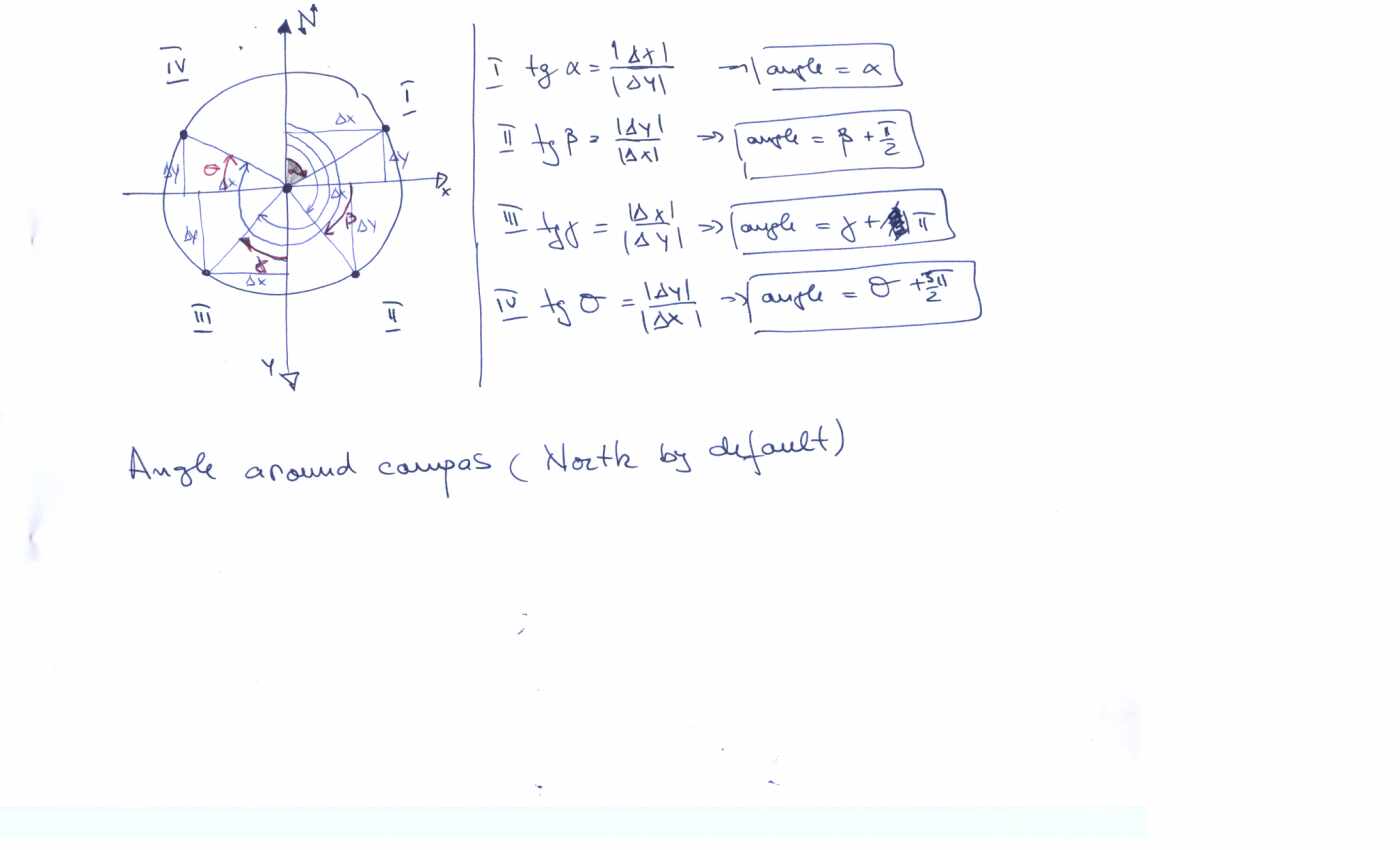 N
IV
I
Δx
Δy
Δy
θ
Δx
α
Δx
x
β
Δy
Δy
γ
Δx
III
II
Y
I tg α = |Δx| / |Δy| → angle = α
II tg β = |Δy| / |Δx| => angle = β + π/2
III tg γ = |Δx| / |Δy| => angle = γ + π
IV tg θ = |Δy| / |Δx| => angle = θ + 3π/2
Angle around compas (North by default)